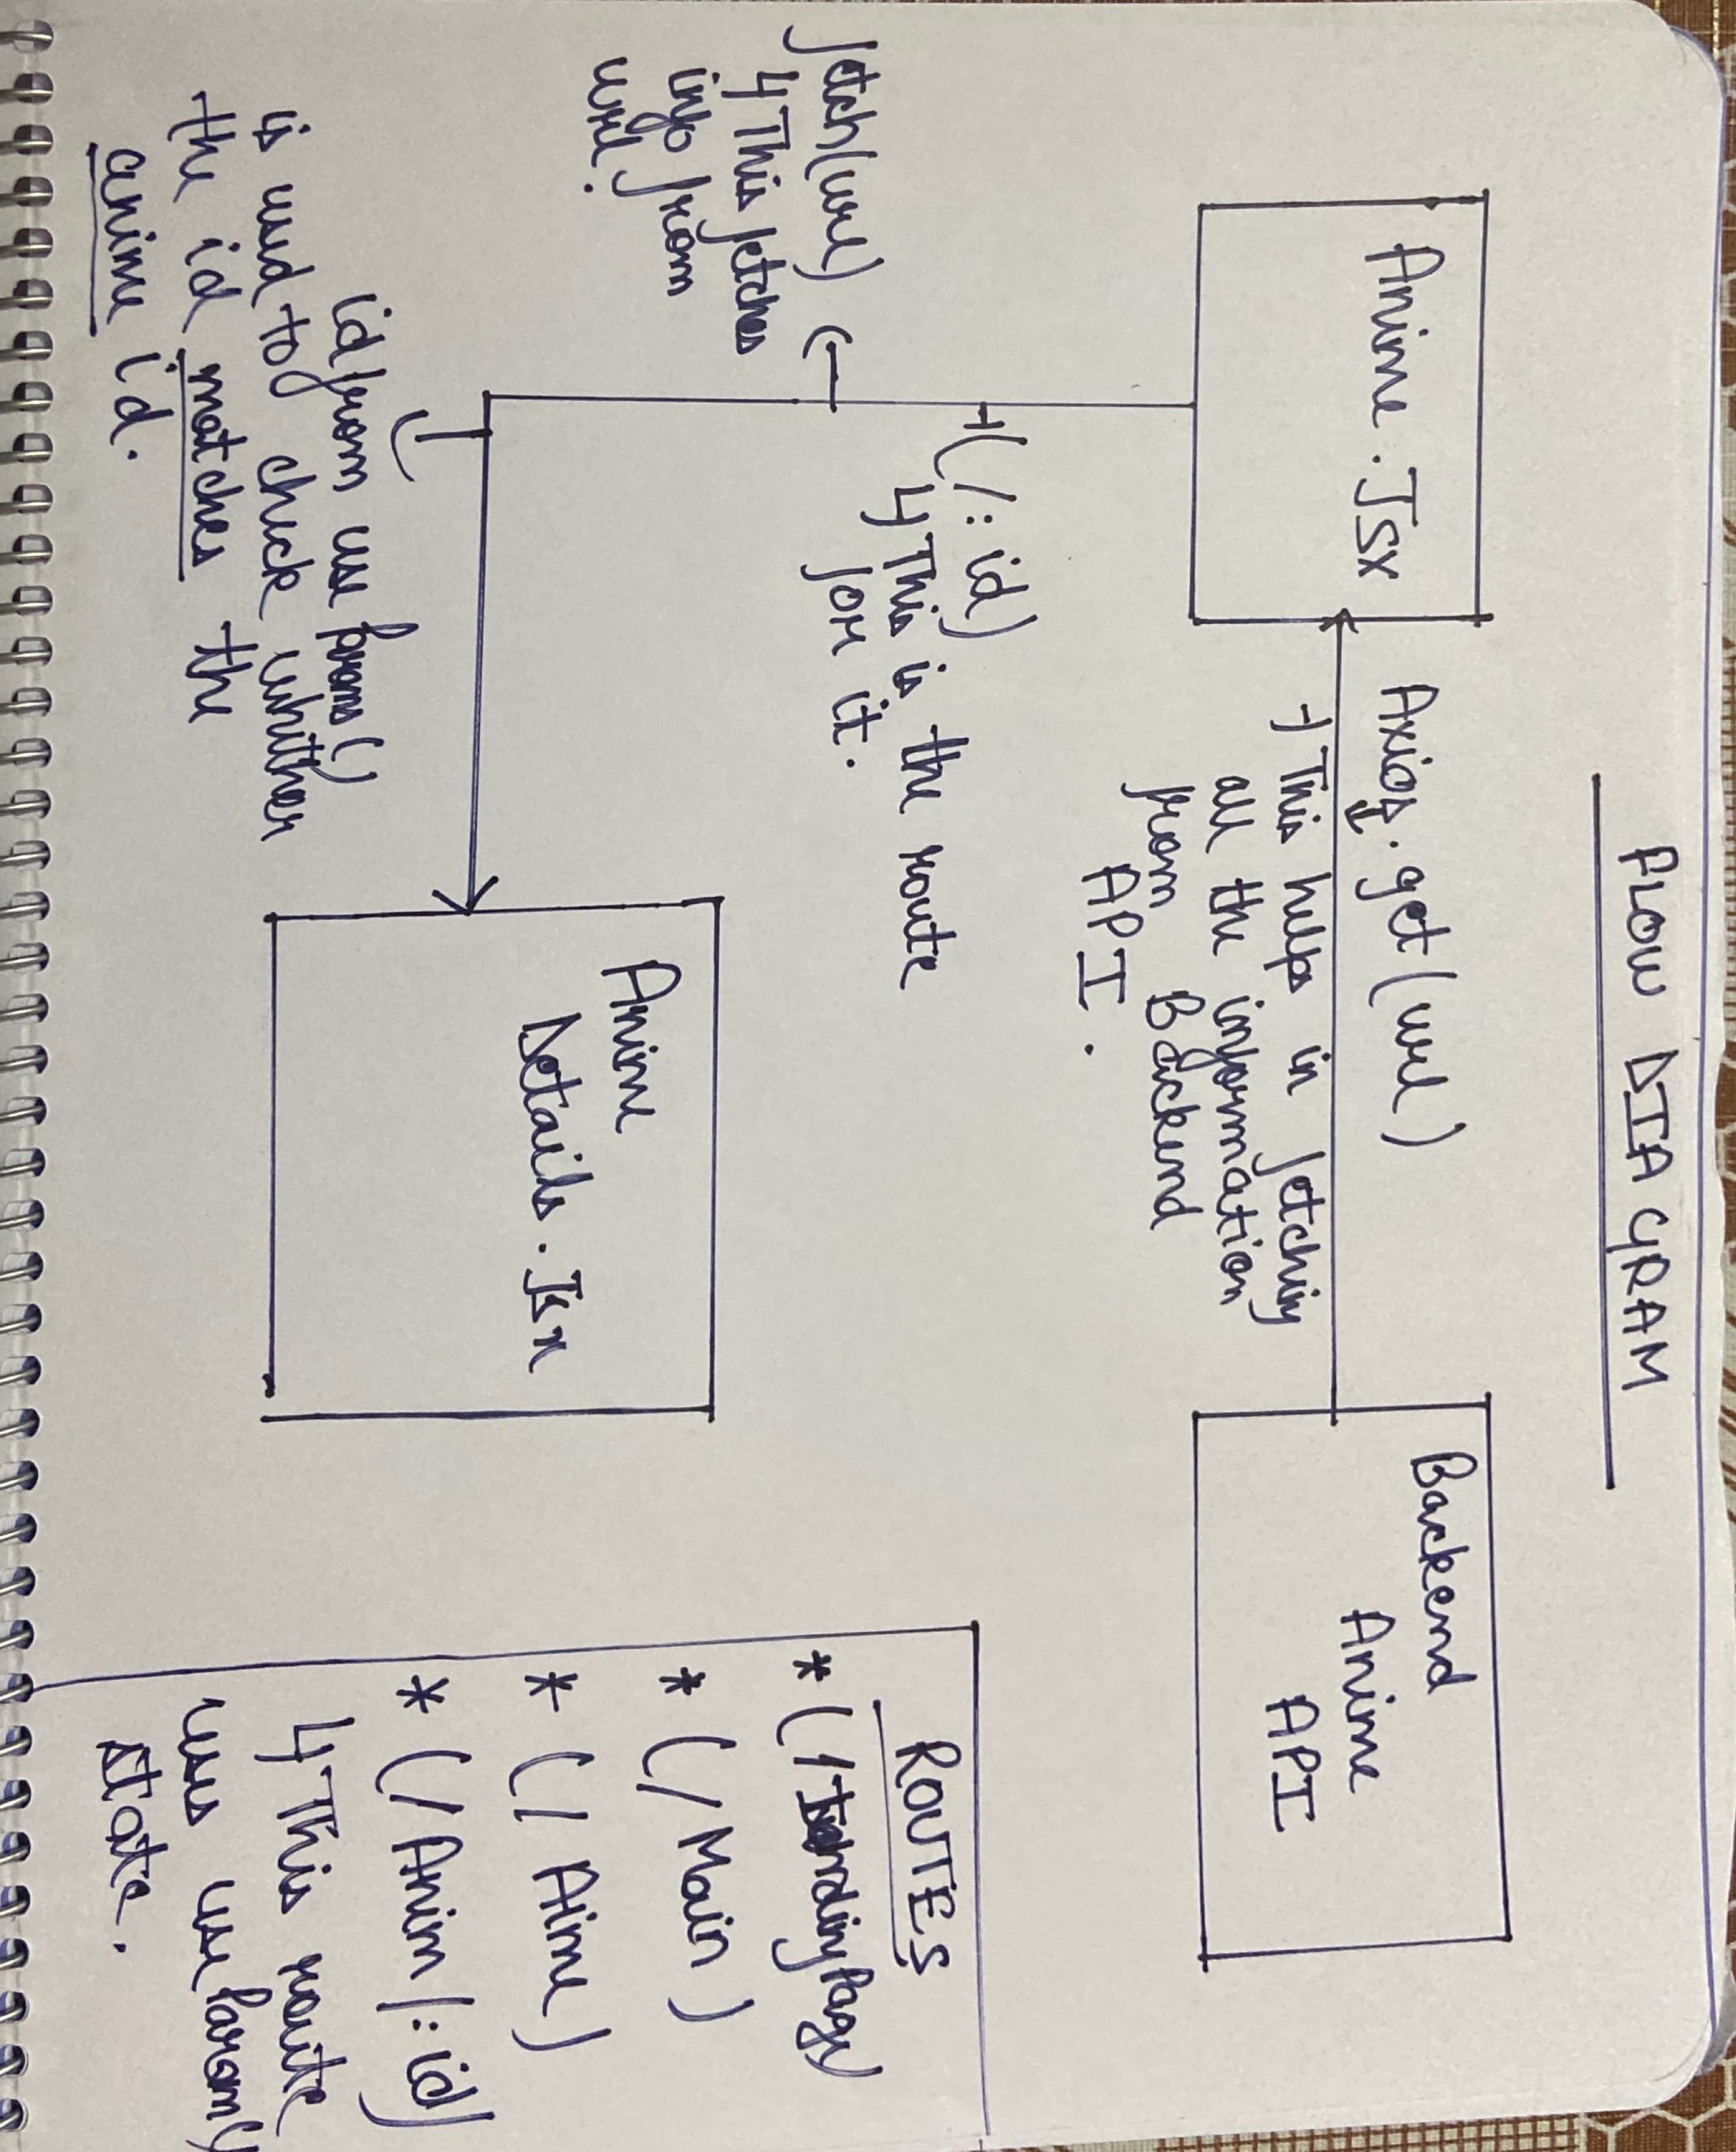 FLOW DIAGRAM
Anime.JSX
Axios.get(url)
→ This helps in fetching
all the information
from Backend
API.
Backend
Anime
API
→(/:id)
↳ This is the route
for it.
fetch(url)
↳ This fetches
info from
url.
Anime
Details.Jsx
id from use params()
is used to check whither
the id matches the
anime id.
ROUTES
* (/LandingPage)
* (/Main)
* (/Aime)
* (/Anim/:id)
↳ This route
uses useParam()
state.